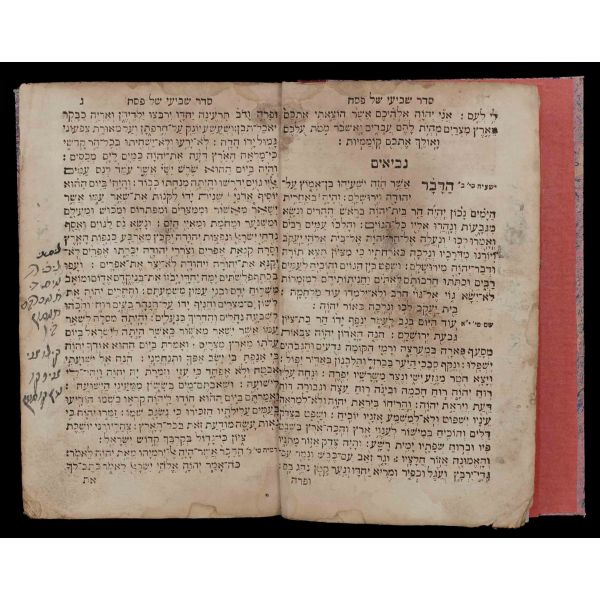 סדר שביעי של פסח
לי לעם : אני יהוה אלהיכם אשר הוצאתי אתכם
מארץ מצרים מהית להם עבדים ואשבר מטת עלכם
ואולך אתכם קוממיות :
נביאים
ישעיה סי׳ ב׳ הדבר אשר חזה ישעיהו בן אמוץ על
יהודה וירושלם : והיה באחרית
הימים נכון יהיה הר בית יהוה בראש ההרים ונשא
מגבעות ונהרו אליו כל הגוים : והלכו עמים רבים
ואמרו לכו ונעלה אל הר יהוה אל בית אלהי יעקב
ויורנו מדרכיו ונלכה בארחתיו כי מציון תצא תורה
ודבר יהוה מירושלם : ושפט בין הגוים והוכיח לעמים
רבים וכתתו חרבותם לאתים וחניתותיהם למזמרות
לא ישא גוי אל גוי חרב ולא ילמדו עוד מלחמה :
בית יעקב לכו ונלכה באור יהוה :
שם סי׳ י״א עוד היום בנב לעמד ינפף ידו הר בת ציון
גבעת ירושלם : הנה האדון יהוה צבאות
מסעף פארה במערצה ורמי הקומה גדעים והגבהים
ישפלו : ונקף סבכי היער בברזל והלבנון באדיר יפול :
ויצא חטר מגזע ישי ונצר משרשיו יפרה : ונחה עליו
רוח יהוה רוח חכמה ובינה רוח עצה וגבורה רוח
דעת ויראת יהוה : והריחו ביראת יהוה ולא למראה
עיניו ישפוט ולא למשמע אזניו יוכיח : ושפט בצדק
דלים והוכיח במישור לענוי ארץ והכה ארץ בשבט
פיו וברוח שפתיו ימית רשע : והיה צדק אזור מתניו
והאמונה אזור חלציו : וגר זאב עם כבש ונמר עם
גדי ירבץ ועגל וכפיר ומריא יחדו ונער קטן נהג בם :
ופרה
סדר שביעי של פסח ג
ופרה ודב תרעינה יחדו ירבצו ילדיהן ואריה כבקר
יאכל תבן : ושעשע יונק על חר פתן ועל מאורת צפעוני
גמול ידו הדה : לא ירעו ולא ישחיתו בכל הר קדשי
כי מלאה הארץ דעה את יהוה כמים לים מכסים :
והיה ביום ההוא שרש ישי אשר עמד לנס עמים
אליו גוים ידרשו והיתה מנחתו כבוד : והיה ביום ההוא
יוסיף אדני שנית ידו לקנות את שאר עמו אשר
ישאר מאשור וממצרים ומפתרוס ומכוש ומעילם
ומשנער ומחמת ומאיי הים : ונשא נס לגוים ואסף
נדחי ישראל ונפצות יהודה יקבץ מארבע כנפות הארץ :
וסרה קנאת אפרים וצררי יהודה יכרתו אפרים לא
יקנא את יהודה ויהודה לא יצר את אפרים : ועפו
בכתף פלשתים ימה יחדו יבזו את בני קדם אדום ומואב
משלוח ידם ובני עמון משמעתם : והחרים יהוה את
לשון ים מצרים והניף ידו על הנהר בעים רוחו והכהו
לשבעה נחלים והדריך בנעלים : והיתה מסלה לשאר
עמו אשר ישאר מאשור כאשר היתה לישראל ביום
עלתו מארץ מצרים : ואמרת ביום ההוא אודך יהוה
כי אנפת בי ישב אפך ותנחמני : הנה אל ישועתי
אבטח ולא אפחד כי עזי וזמרת יה יהוה ויהי לי
לישועה : ושאבתם מים בששון ממעיני הישועה :
ואמרתם ביום ההוא הודו ליהוה קראו בשמו הודיעו
בעמים עלילתיו הזכירו כי נשגב שמו : זמרו יהוה כי
גאות עשה מודעת זאת בכל הארץ : צהלי ורני יושבת
ציון כי גדול בקרבך קדוש ישראל :
הדבר אשר היה אל ירמיהו מאת יהוה לאמר :
כה אמר יהוה אלהי ישראל לאמר כתב לך
את